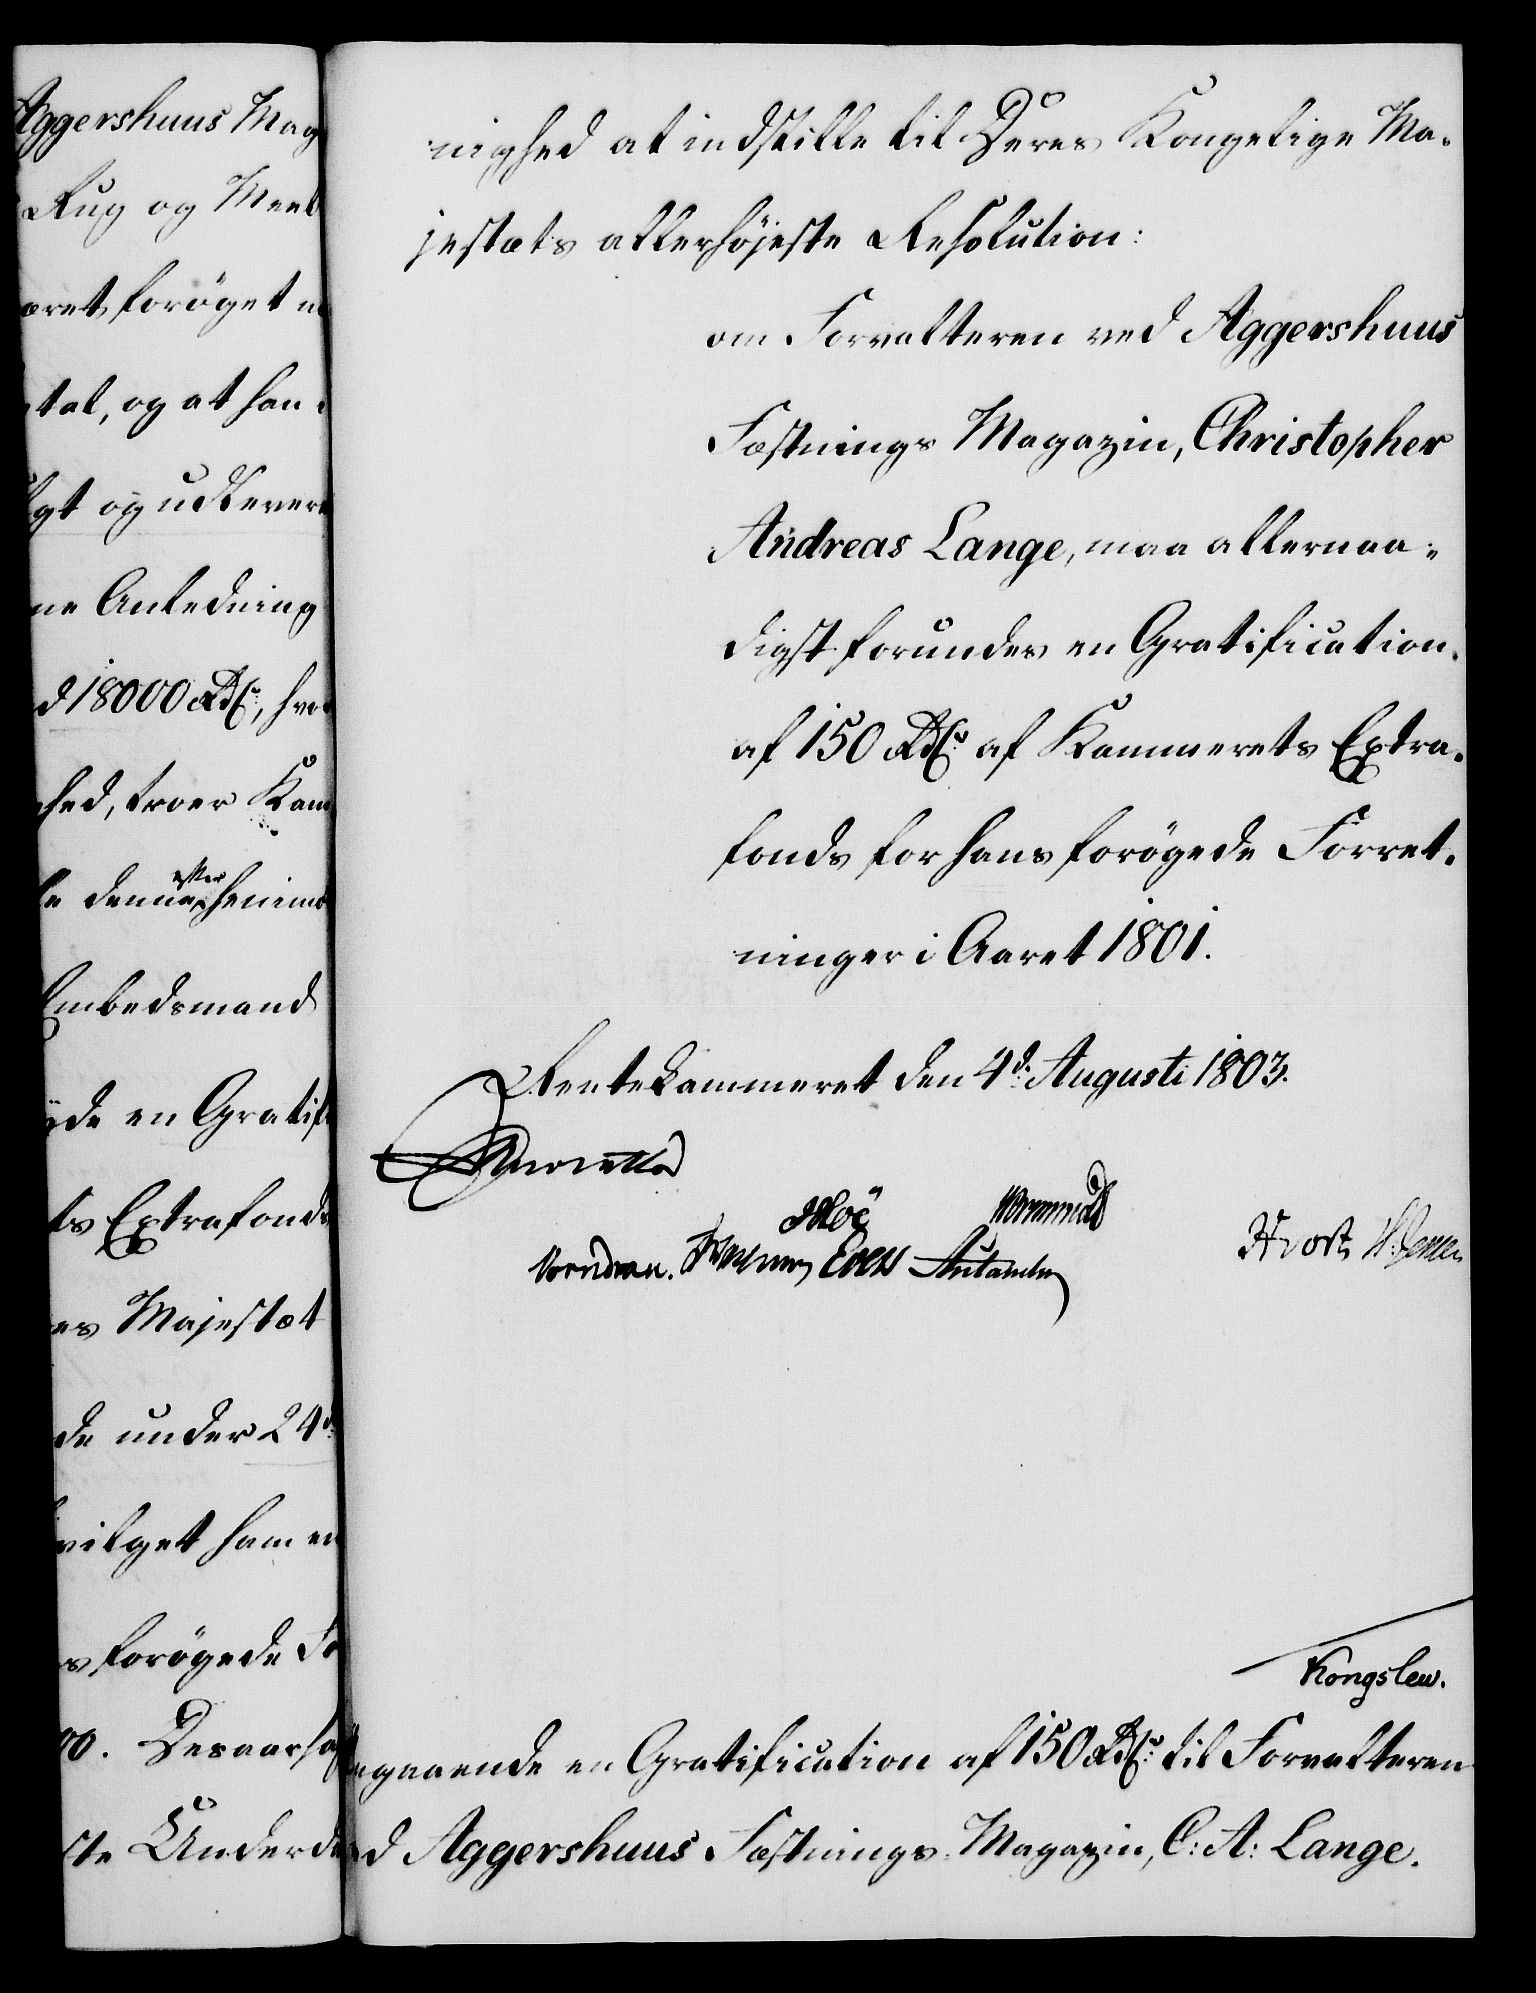 Aggershuus Mag
Rug og Meel
æret forøget
tal, og at han
gt og udlever
ne Anledning
d 18000 Rdlr, hvor
hed, troer Kam
denne efter
Embedsmand
de en Gratifi
ts Extrafonds
es Majestæt
de under 24d
vilget ham en
s forøgede Fo
00. Desaarsag
ste Underda
nighed at indstille til Deres Kongelige Ma-
jestæts allerhöjeste Resolution:
om Forvalteren ved Aggershuus
Fæstnings Magazin, Christopher
Andreas Lange, maa allernaa-
digst forundes en Gratification
af 150 Rdlr. af Kammerets Extra-
fonds for hans forøgede Forret-
ninger i Aaret 1801.
Rentekammeret den 4d. Augusti 1803.
Reventlow
Höe Wormskiold
Wormdran. Ewers
Kongslew.
gaaende en Gratification af 150 Rdlr. til Forvalteren
d Aggershuus Fæstnings-Magazin, C: A: Lange.